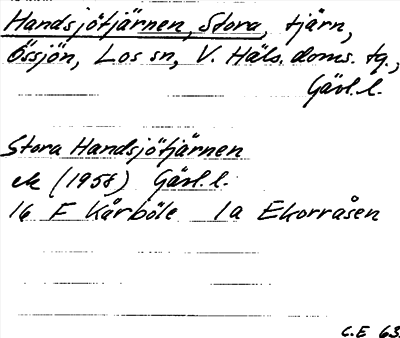 Handsjötjärnen, Stora, tjärn,
Össjön, Los sn, V. Häls. doms. tg.,
Gävl. l.
Stora Handsjötjärnen
ek (1958) Gävl. l.
16 F Kårböle 1a Ekorråsen
C.E 63.